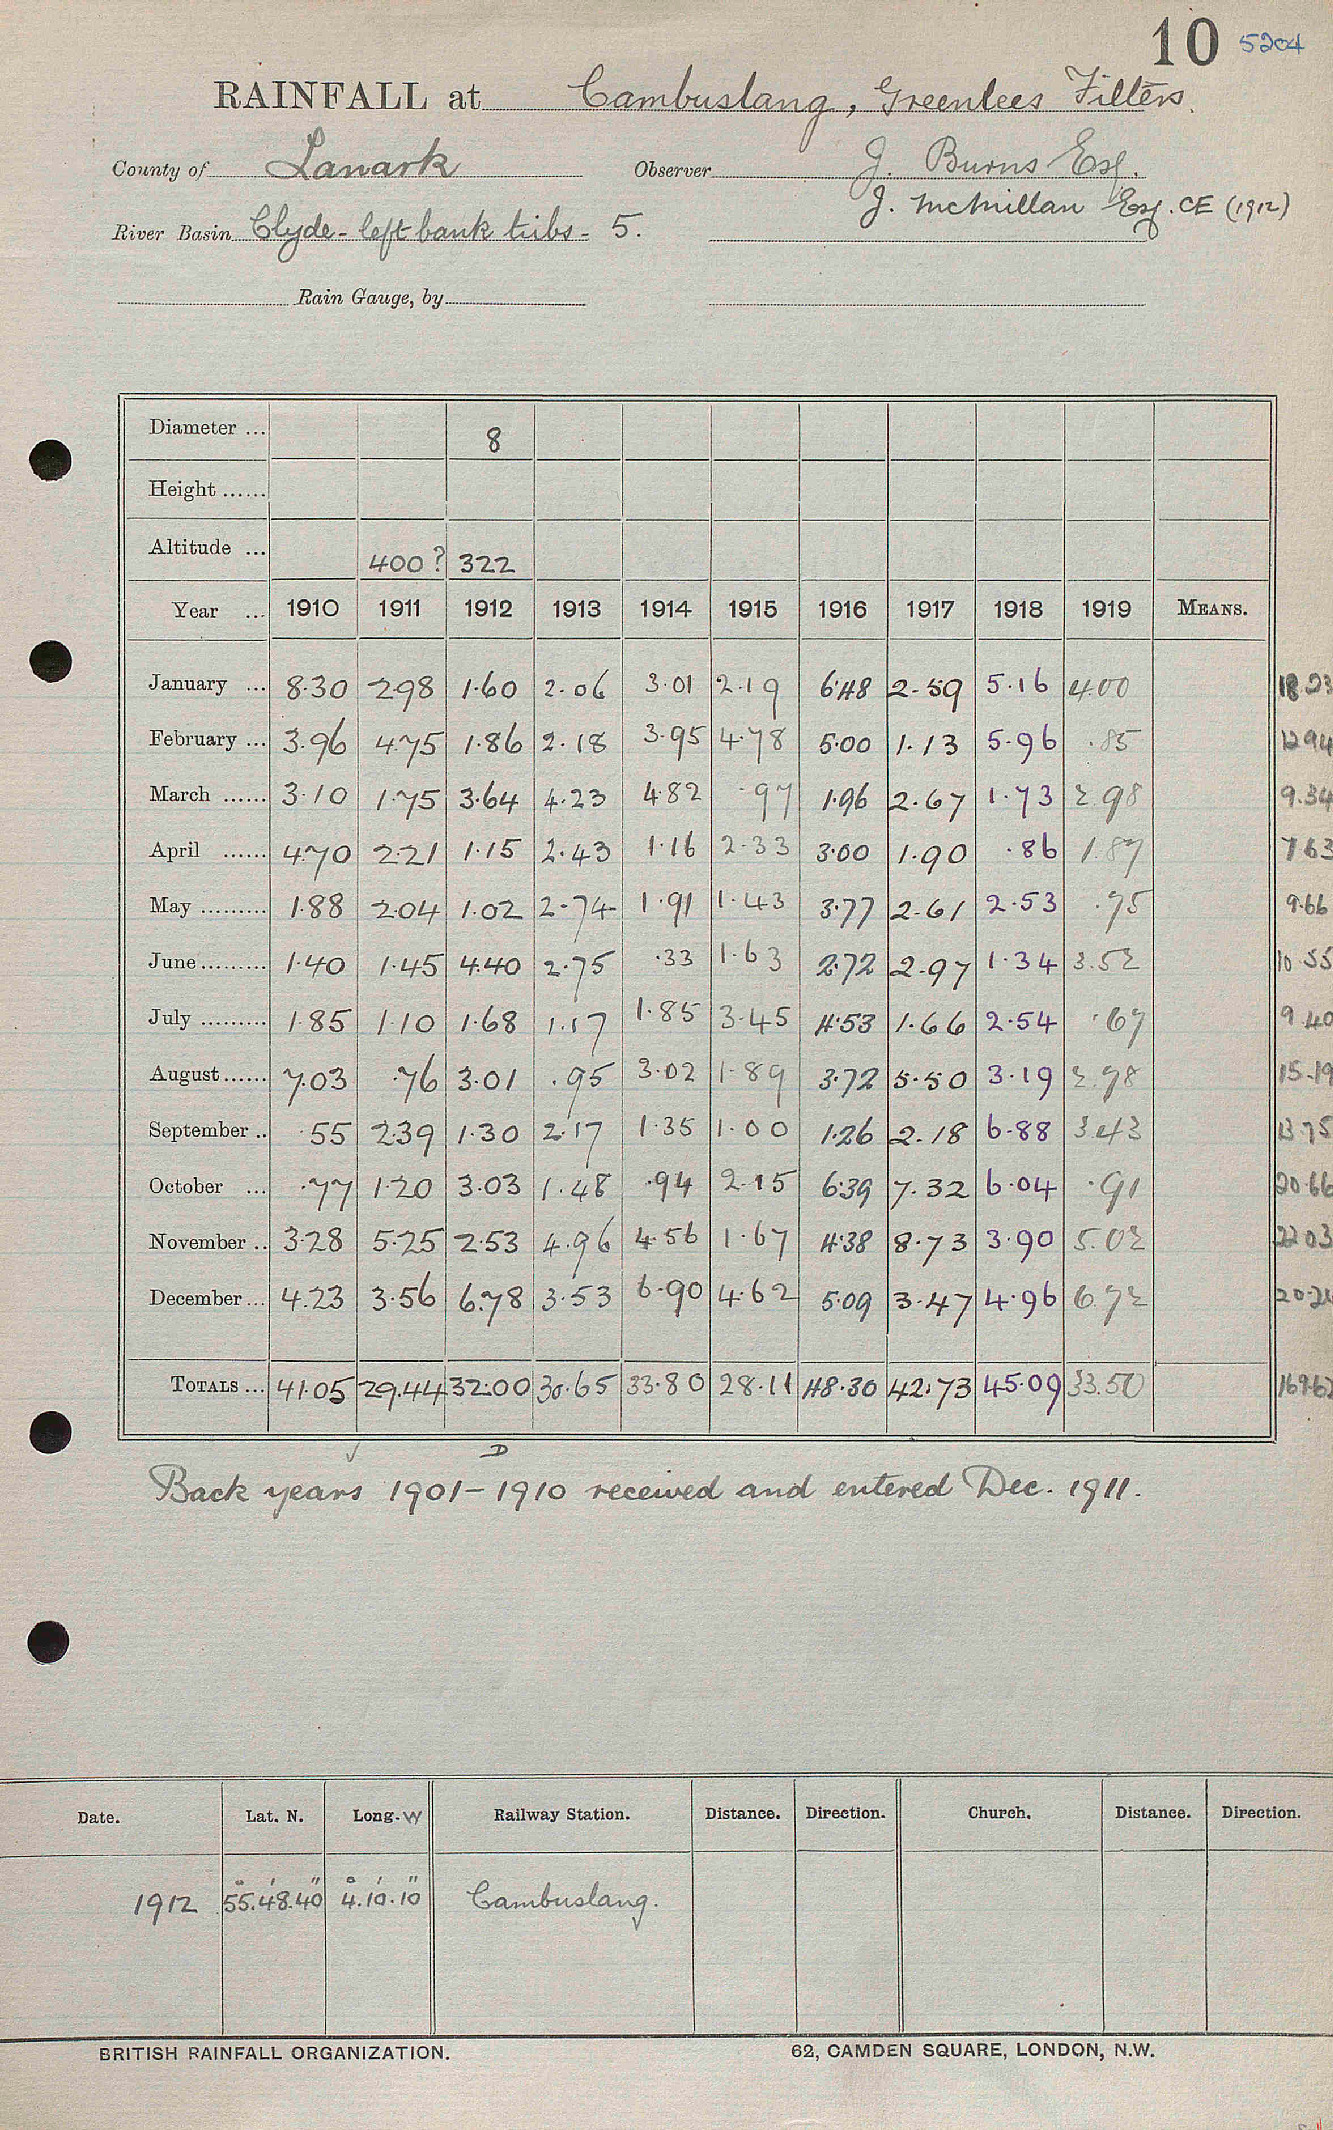 10 5204
RAINFALL at Cambuslang, Greenlees Filters.
County of Lanark Observer J. Burns Esq.
J. McMillan Esq. CE (1912)
River Basin Clyde - left bank tribs - 5.
Rain Gauge, by
Diameter ... 8
Height ......
Altitude ... 400? 322
Year ... 1910 1911 1912 1913 1914 1915 1916 1917 1918 1919 MEANS.
January ... 8.30 2.98 1.60 2.06 3.01 2.19 6.48 2.59 5.16 4.00 18.23
February ... 3.96 4.75 1.86 2.18 3.95 4.78 5.00 1.13 5.96 .85 12.94
March ...... 3.10 1.75 3.64 4.23 4.82 .97 1.96 2.67 1.73 2.98 9.34
April ...... 4.70 2.21 1.15 2.43 1.16 2.33 3.00 1.90 .86 1.87 7.63
May ......... 1.88 2.04 1.02 2.74 1.91 1.43 3.77 2.61 2.53 .75 9.66
June ......... 1.40 1.45 4.40 2.75 .33 1.63 2.72 2.97 1.34 3.52 10.55
July ......... 1.85 1.10 1.68 1.17 1.85 3.45 4.53 1.66 2.54 .67 9.40
August ...... 7.03 .76 3.01 .95 3.02 1.89 3.72 5.50 3.19 2.78 15.19
September .. .55 2.39 1.30 2.17 1.35 1.00 1.26 2.18 6.88 3.43 13.75
October ... .77 1.20 3.03 1.48 .94 2.15 6.39 7.32 6.04 .91 20.66
November .. 3.28 5.25 2.53 4.96 4.56 1.67 4.38 8.73 3.90 5.02 22.03
December ... 4.23 3.56 6.78 3.53 6.90 4.62 5.09 3.47 4.96 6.72 20.24
TOTALS ... 41.05 29.44 32.00 30.65 33.80 28.11 48.30 42.73 45.09 33.50 169.62
✓ D
Back years 1901 - 1910 received and entered Dec. 1911.
Date. Lat. N. Long. W Railway Station. Distance. Direction. Church. Distance. Direction.
1912 55° 48' 40" 4° 10' 10" Cambuslang.
BRITISH RAINFALL ORGANIZATION. 62, CAMDEN SQUARE, LONDON, N.W.